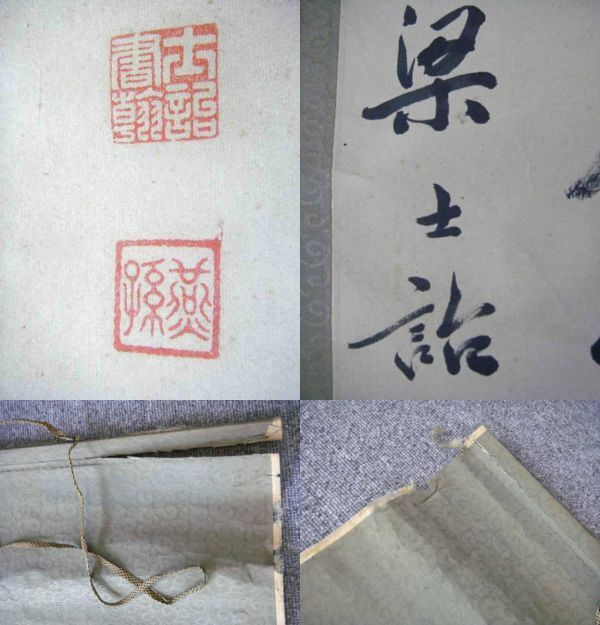 士詒
書翰
燕
孫
梁士詒